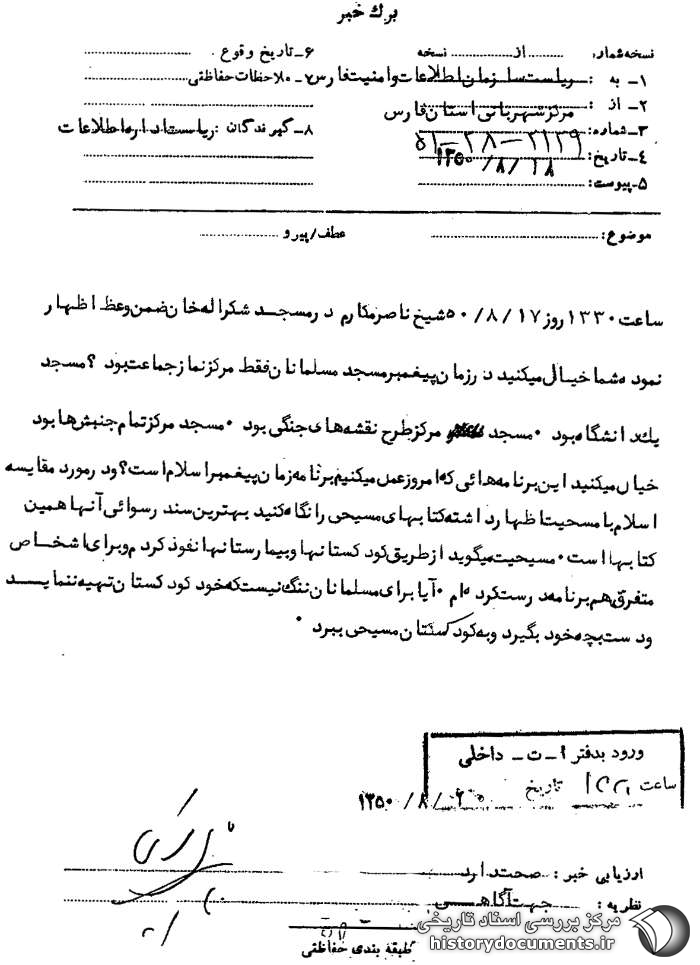 برگ خبر
نسخه شماره ........... از ........... نسخه
۱ـ به : ریاست سازمان اطلاعات و امنیت فارس
۲ـ از : مرکز شهربانی استان فارس
۳ـ شماره: ۲۱۳۹ــ۳۸ــ۵۱
۴ـ تاریخ: ۱۸/ ۸/ ۱۳۵۰
۵ـ پیوست:
۶ـ تاریخ وقوع
۷ـ ملاحظات حفاظتی
۸ـ گیرندگان : ریاست اداره اطلاعات
موضوع: عطف/پیرو
ساعت ۱۳۳۰ روز ۱۷/ ۸/ ۵۰ شیخ ناصر مکارم در مسجد شکراله خان ضمن وعظ اظهار
نموده شما خیال میکنید در زمان پیغمبر مسجد مسلمانان فقط مرکز نماز جماعت بود ؟ مسجد
یک دانشگاه بود ۰ مسجد مرکز طرح نقشه های جنگی بود ۰ مسجد مرکز تمام جنبش ها بود
خیال میکنید این برنامه هائی که امروز عمل میکنیم برنامه زمان پیغمبر اسلام است؟ و در مورد مقایسه
اسلام با مسحیت اظهار داشته کتابهای مسیحی را نگاه کنید بهترین سند رسوائی آنها همین
کتابها است ۰ مسیحیت میگوید از طریق کودکستانها و بیمارستانها نفوذ کردم و برای اشخاص
متفرق هم برنامه درست کرده ام ۰ آیا برای مسلمانان ننگ نیست که خود کودکستان تهیه ننماید
و دست بچه خود بگیرد و به کودکستان مسیحی ببرد ۰
ورود بدفتر ۱ـ ت ـ داخلی
ساعت تاریخ
۱۳۵۰/ ۸/
ارزیابی خبر : صحت دارد
نظریه : جهت آگاهی
طبقه بندی حفاظتی
مرکز بررسی اسناد تاریخی
historydocuments.ir